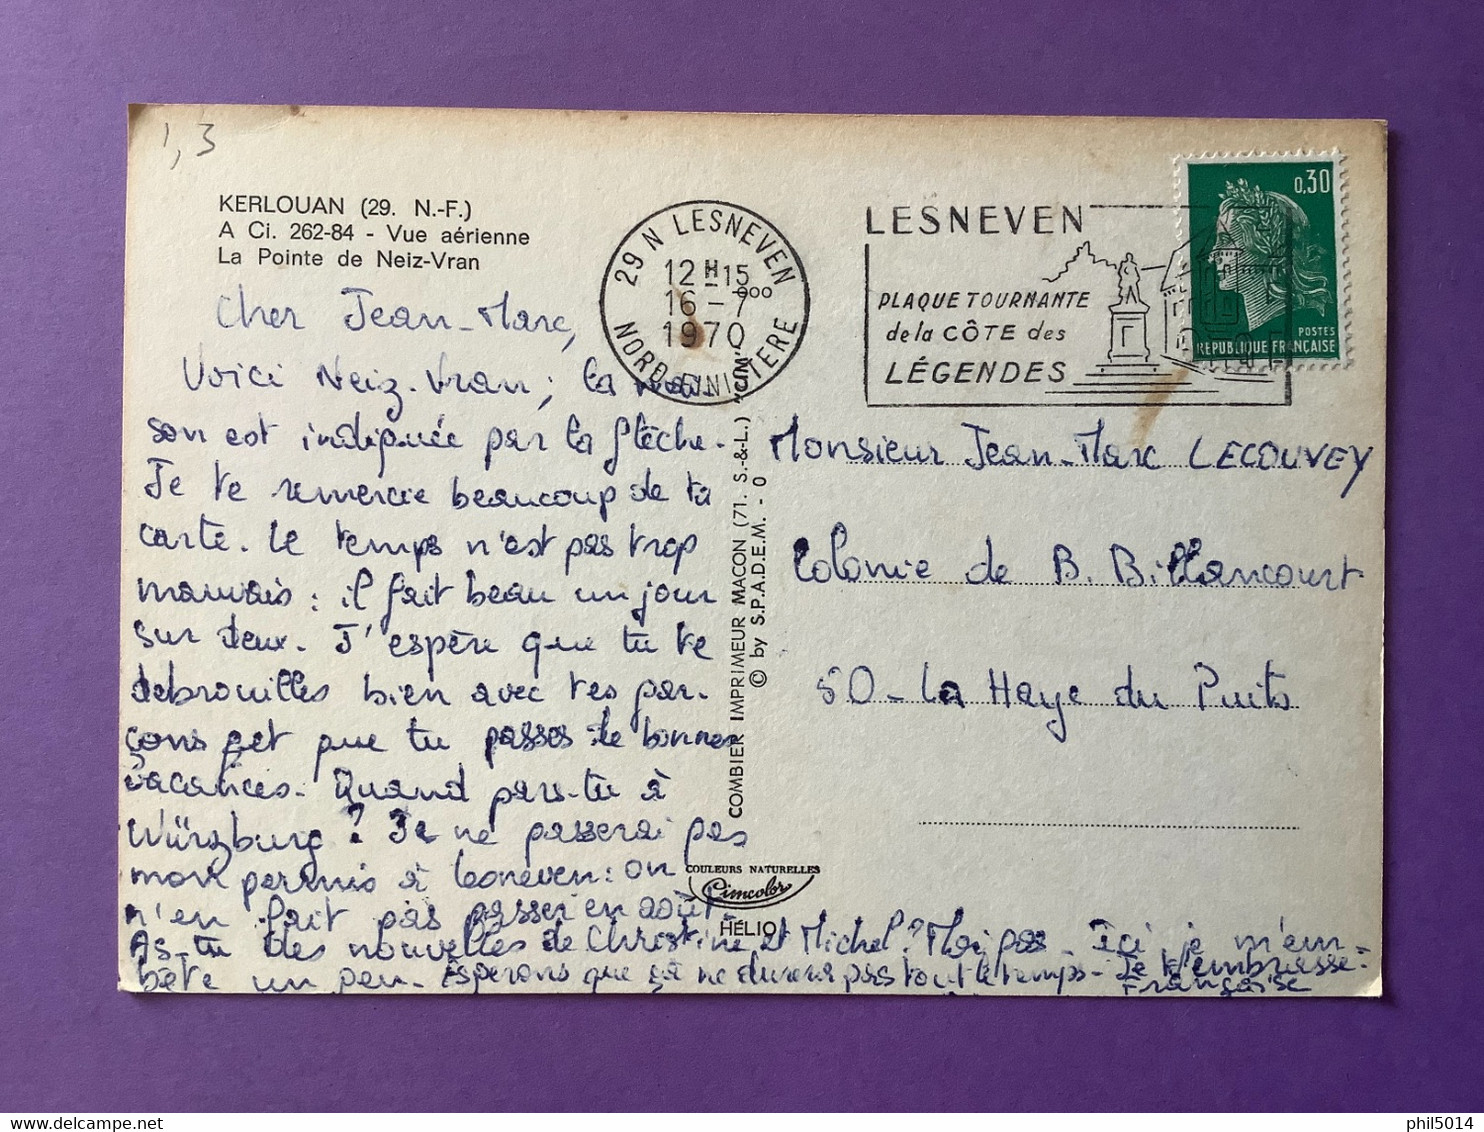 1,3
KERLOUAN (29. N.-F.)
A Ci. 262-84 - Vue aérienne
La Pointe de Neiz-Vran
29 N LESNEVEN
12 H 15
16 - 7
1970
NORD-FINISTERE
LESNEVEN
PLAQUE TOURNANTE
de la CÔTE des
LÉGENDES
0,30
POSTES
REPUBLIQUE FRANÇAISE
Cher Jean-Marc,
Voici Neiz-Vran ; la mai-
son est indiquée par la flèche.
Je te remercie beaucoup de ta
carte. Le temps n'est pas trop
mauvais : il fait beau un jour
sur deux. J'espère que tu te
debrouilles bien avec tes gar-
çons et que tu passes de bonnes
vacances. Quand pars-tu à
Würzburg ? Je ne passerai pas
mon permis à Lesneven : on
n'en fait pas passer en août.
As-tu des nouvelles de Christine et Michel ? Moi pas. Ici je m'em-
bête un peu. Esperons que ça ne durera pas tout le temps. Je t'embrasse.
Françoise
COMBIER IMPRIMEUR MACON (71. S.-&-L.) "CIM"
© by S.P.A.D.E.M. - 0
COULEURS NATURELLES
Cimcolor
HÉLIO
Monsieur Jean-Marc LECOUVEY
Colonie de B. Billancourt
50 - La Haye du Puits
phil5014